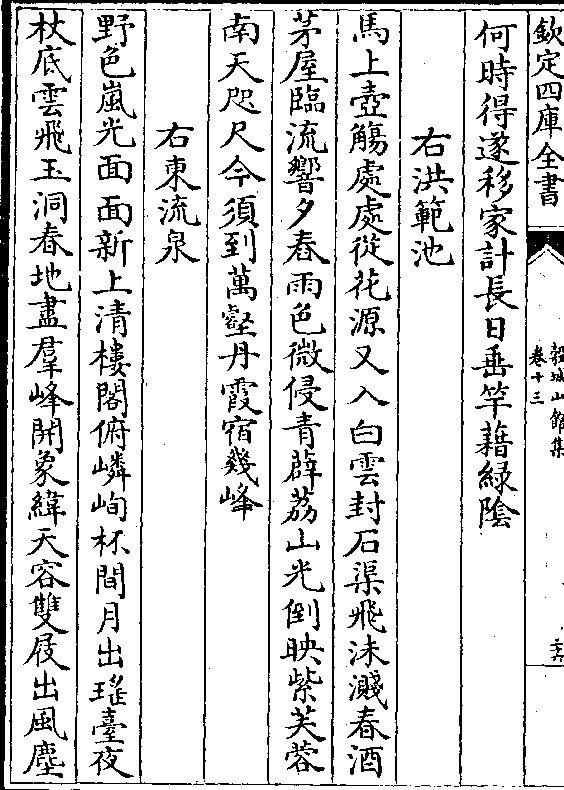 欽定四庫全書
糓城山館集
卷十三
二十六
何時得遂移家計長日垂竿藉緑陰
右洪範池
馬上壺觴處處從花源又入白雲封石渠飛沬濺春酒
茅屋臨流響夕舂雨色微侵青薜荔山光倒映紫芙蓉
南天咫尺今須到萬壑丹霞宿幾峰
右東流泉
野色嵐光面面新上清樓閣俯嶙峋杯間月出瑤臺夜
杖底雲飛玉洞春地盡羣峰開象緯天容雙屐出風塵